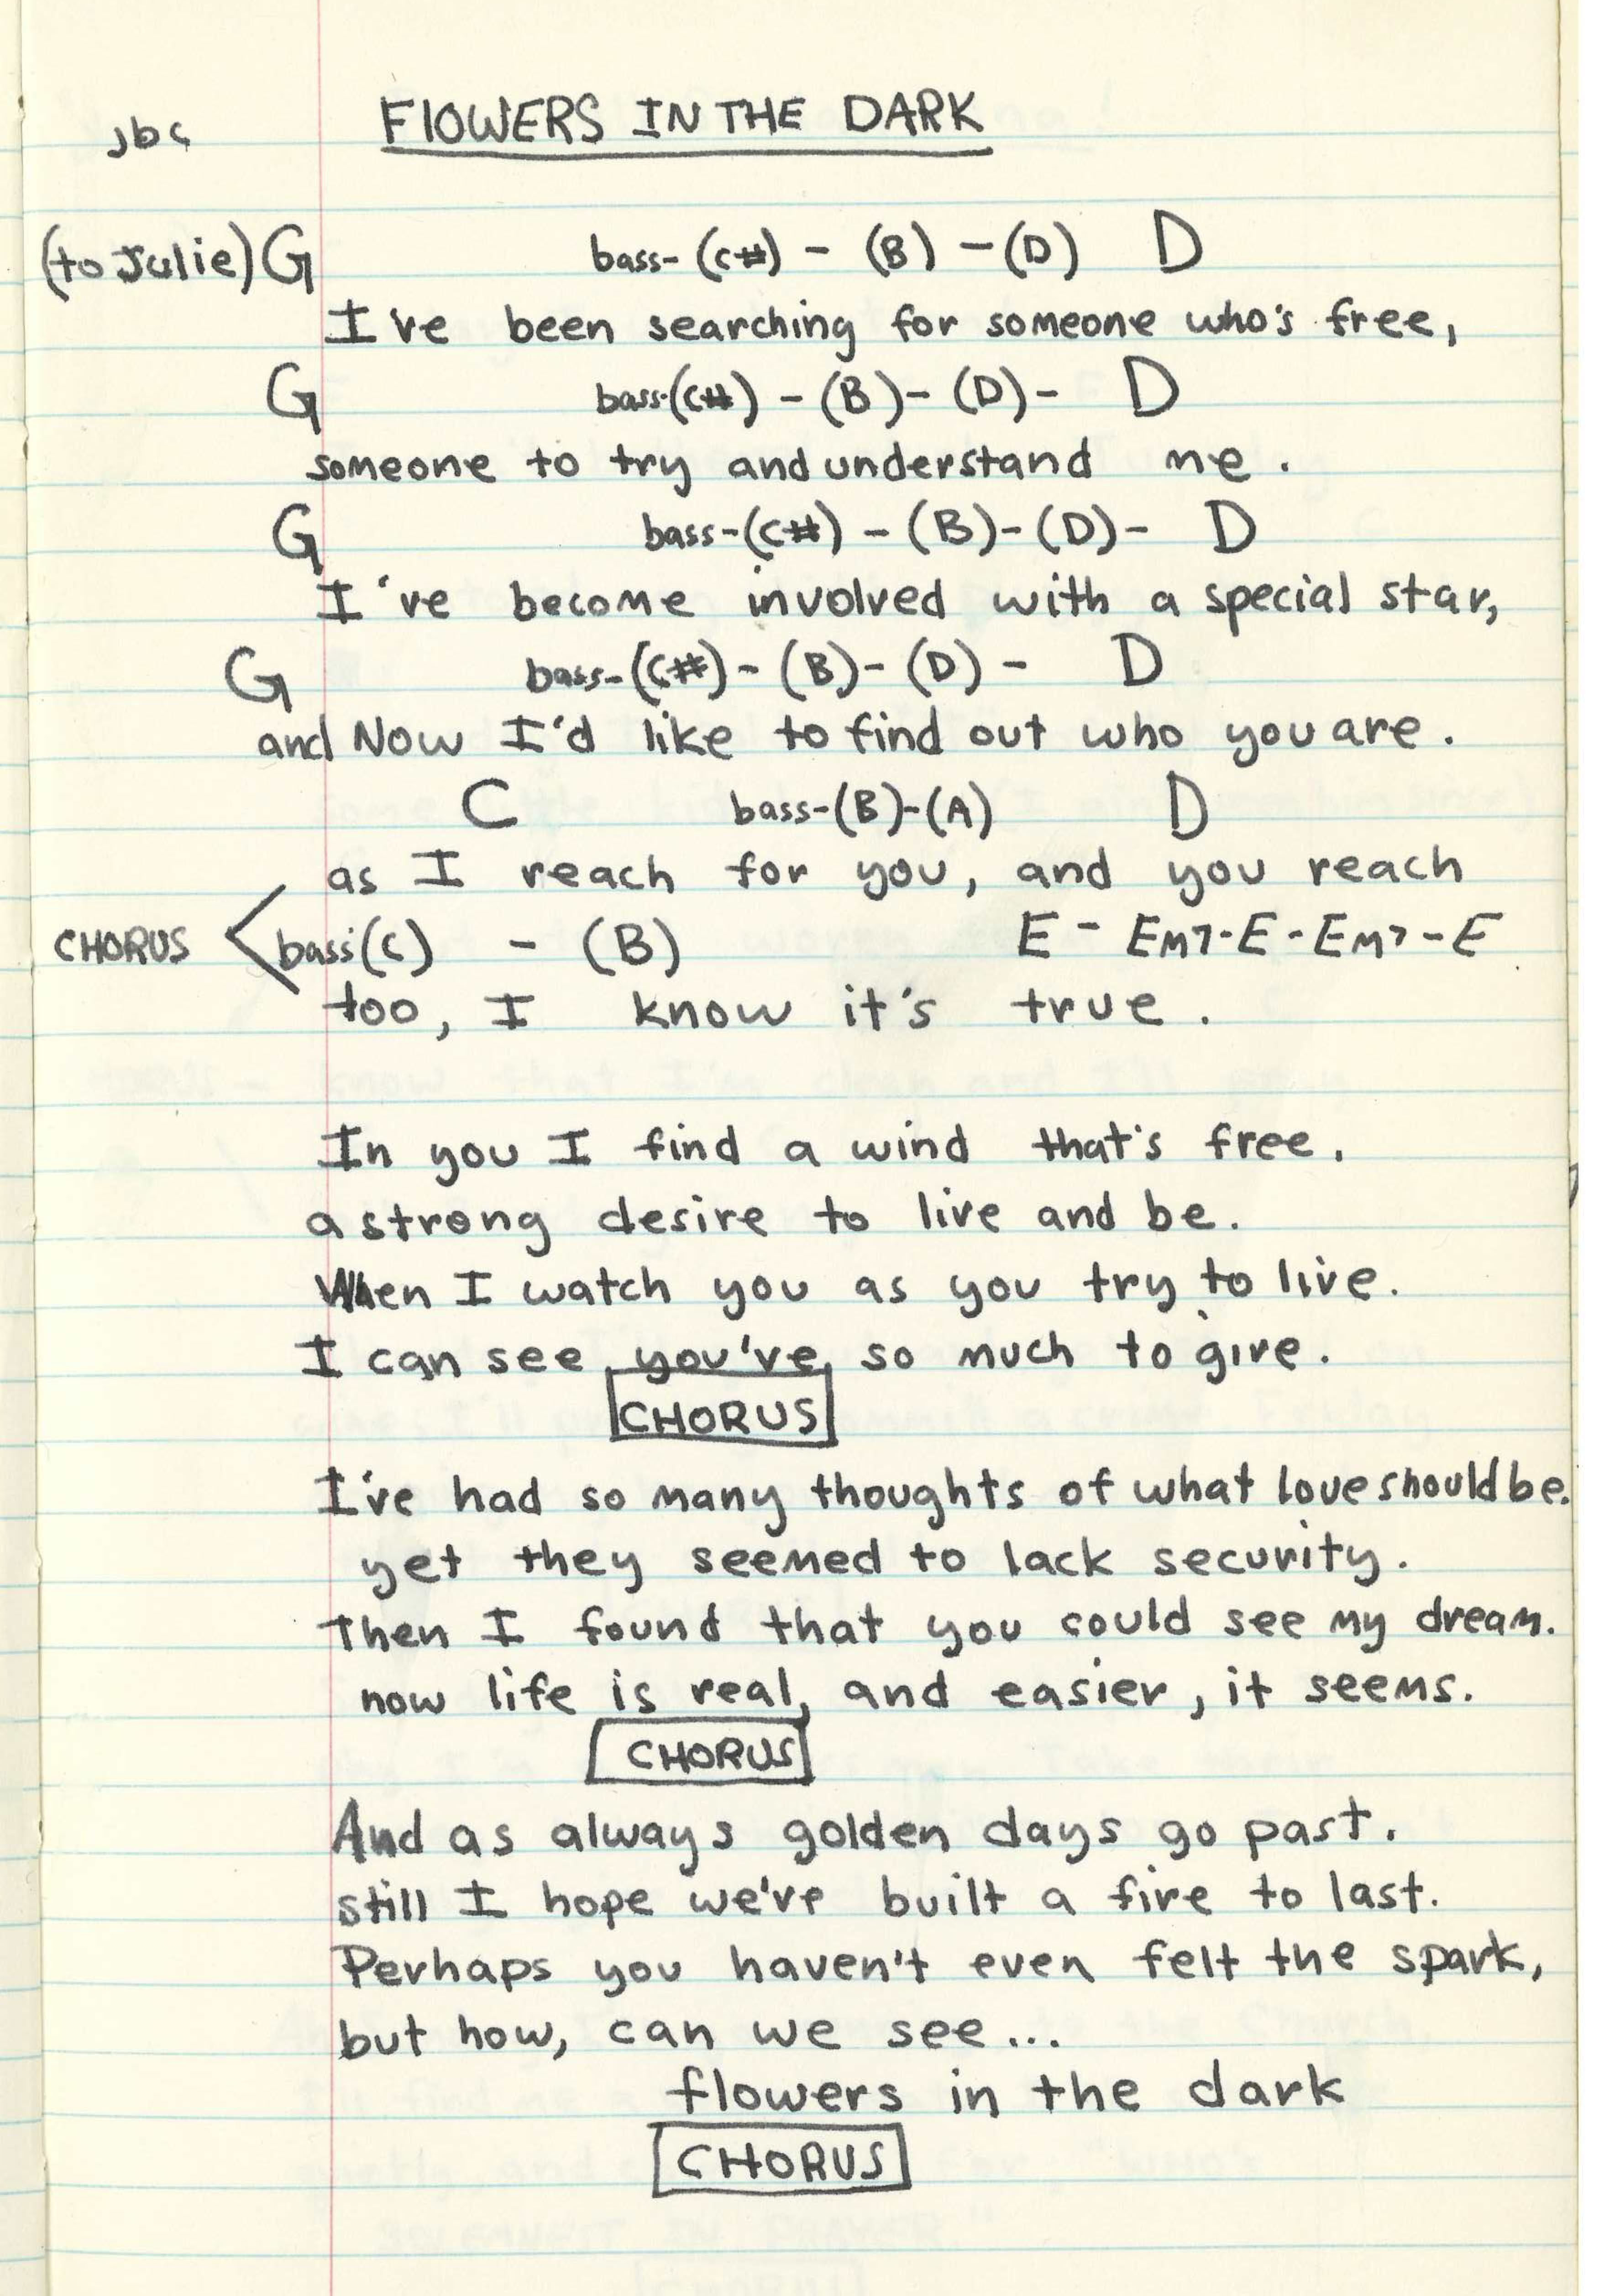 jbc FLOWERS IN THE DARK
(to Julie) G bass- (C#) - (B) - (D) D
I've been searching for someone who's free,
G bass-(C#) - (B)- (D)- D
someone to try and understand me.
G bass-(C#) - (B)-(D)- D
I've become involved with a special star,
G bass-(C#)- (B)- (D) - D
and Now I'd like to find out who you are.
C bass-(B)-(A) D
as I reach for you, and you reach
CHORUS < bass(C) - (B) E - Em7-E-Em7-E
too, I know it's true.
In you I find a wind that's free.
a strong desire to live and be.
When I watch you as you try to live.
I can see you've so much to give.
CHORUS
I've had so many thoughts of what love should be.
yet they seemed to lack security.
Then I found that you could see my dream.
now life is real, and easier, it seems.
CHORUS
And as always golden days go past.
still I hope we've built a fire to last.
Perhaps you haven't even felt the spark,
but how, can we see...
flowers in the dark
CHORUS